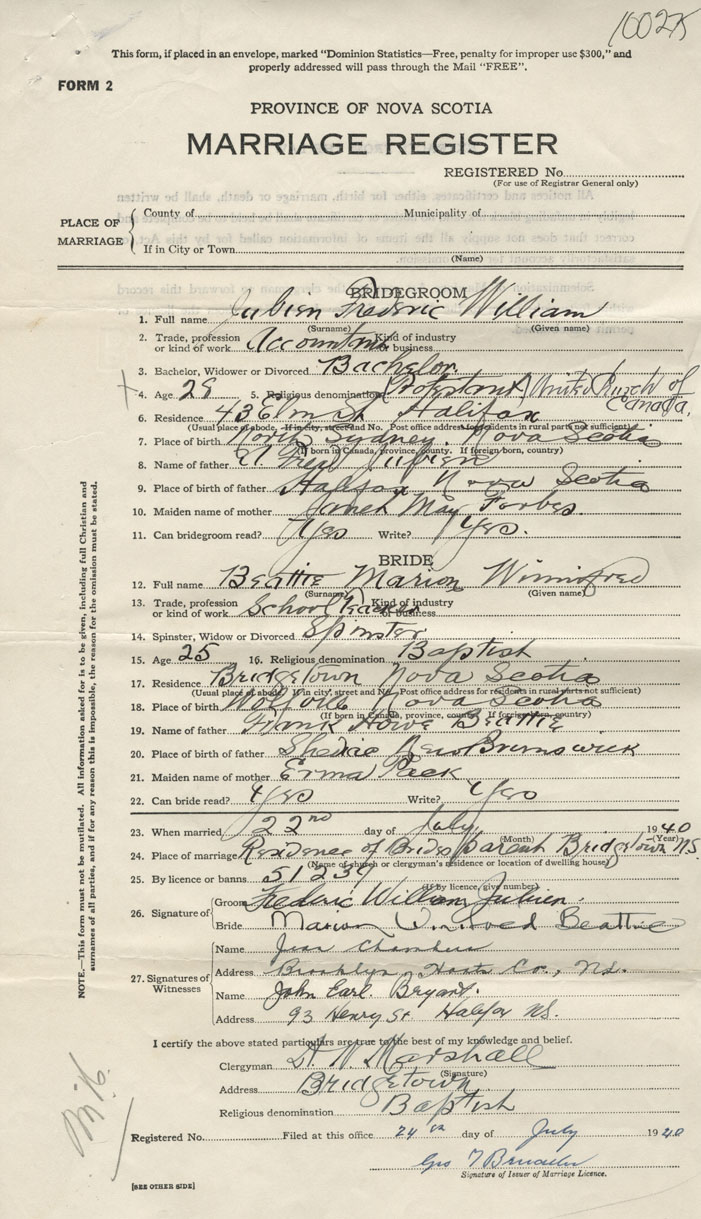 100275
This form, if placed in an envelope, marked "Dominion Statistics—Free, penalty for improper use $300," and
properly addressed will pass through the Mail "FREE".
FORM 2
PROVINCE OF NOVA SCOTIA
MARRIAGE REGISTER
REGISTERED No.
(For use of Registrar General only)
PLACE OF MARRIAGE
County of Municipality of
If in City or Town
(Name)
BRIDEGROOM
1. Full name Julien Frederic William
(Surname) (Given name)
2. Trade, profession or kind of work Accountant Kind of industry or business
3. Bachelor, Widower or Divorced Bachelor
4. Age 28 5. Religious denomination (Protestant) United Church of Canada.
6. Residence 43 Elm St Halifax
(Usual place of abode. If in city, street and No. Post office address for residents in rural parts not sufficient)
7. Place of birth North Sydney. Nova Scotia
(If born in Canada, province, county. If foreign born, country)
8. Name of father Fred Julien
9. Place of birth of father Halifax Nova Scotia
10. Maiden name of mother Janet May Forbes
11. Can bridegroom read? Yes Write? Yes.
BRIDE
12. Full name Beattie Marion Winnifred
(Surname) (Given name)
13. Trade, profession or kind of work School Teacher Kind of industry or business
14. Spinster, Widow or Divorced Spinster
15. Age 25 16. Religious denomination Baptist
17. Residence Bridgetown Nova Scotia
(Usual place of abode. If in city, street and No. Post office address for residents in rural parts not sufficient)
18. Place of birth Wolfville Nova Scotia
(If born in Canada, province, county. If foreign born, country)
19. Name of father Frank Howe Beattie
20. Place of father Shediac New Brunswick
21. Maiden name of mother Erma Peck
22. Can bride read? Yes Write? Yes
23. When married 22nd day of July 1940
(Month) (Year)
24. Place of marriage Residence of Brides Parent Bridgetown N.S.
(Name of church or clergyman's residence or location of dwelling house)
25. By licence or banns 51239
(If by licence, give number)
26. Signature of
Groom Frederic William Julien.
Bride Marion Winifred Beattie
27. Signatures of Witnesses
Name Jean Chambers
Address Brooklyn Hants Co., N.S.
Name John Earl. Bryant.
Address 93 Henry St Halifax N.S.
I certify the above stated particulars are true to the best of my knowledge and belief.
Clergyman Marshall
(Signature)
Address Bridgetown
Religious denomination Baptist
Registered No. Filed at this office 24th day of July 1940
Geo
Signature of Issuer of Marriage Licence.
[SEE OTHER SIDE]
NOTE.—This form must not be mutilated. All information asked for is to be given, including full Christian and
surnames of all parties, and if for any reason this is impossible, the reason for the omission must be stated.